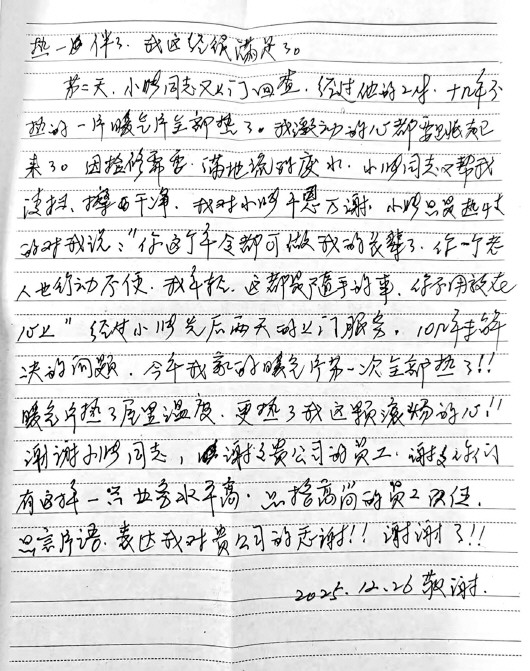 热一大件了，我这已经很满足了。
第二天，小师同志又上门回查，经过他的工作，十几年不
热的一片暖气片全部热了。我激动的心都要跳起
来了。因检修需要，满地流的废水，小师同志又帮我
清扫，擦干净，我对小师千恩万谢，小师只是热情
的对我说："你这个年令都可做我的长辈了，你一个老
人也行动不便，我年轻，这都是随手的事，你不用放在
心上" 经过小师先后两天的上门服务，10几年未解
决的问题，今年我家的暖气片第一次全部热了!!
暖气片热了屋里温度，更热了我这颗滚烫的心!!
谢谢小师同志，谢谢贵公司的员工，谢谢你们
有这样一只业务水平高，品格高尚的员工队伍，
只言片语，表达我对贵公司的感谢!! 谢谢了!!
2025.12.26 敬谢.